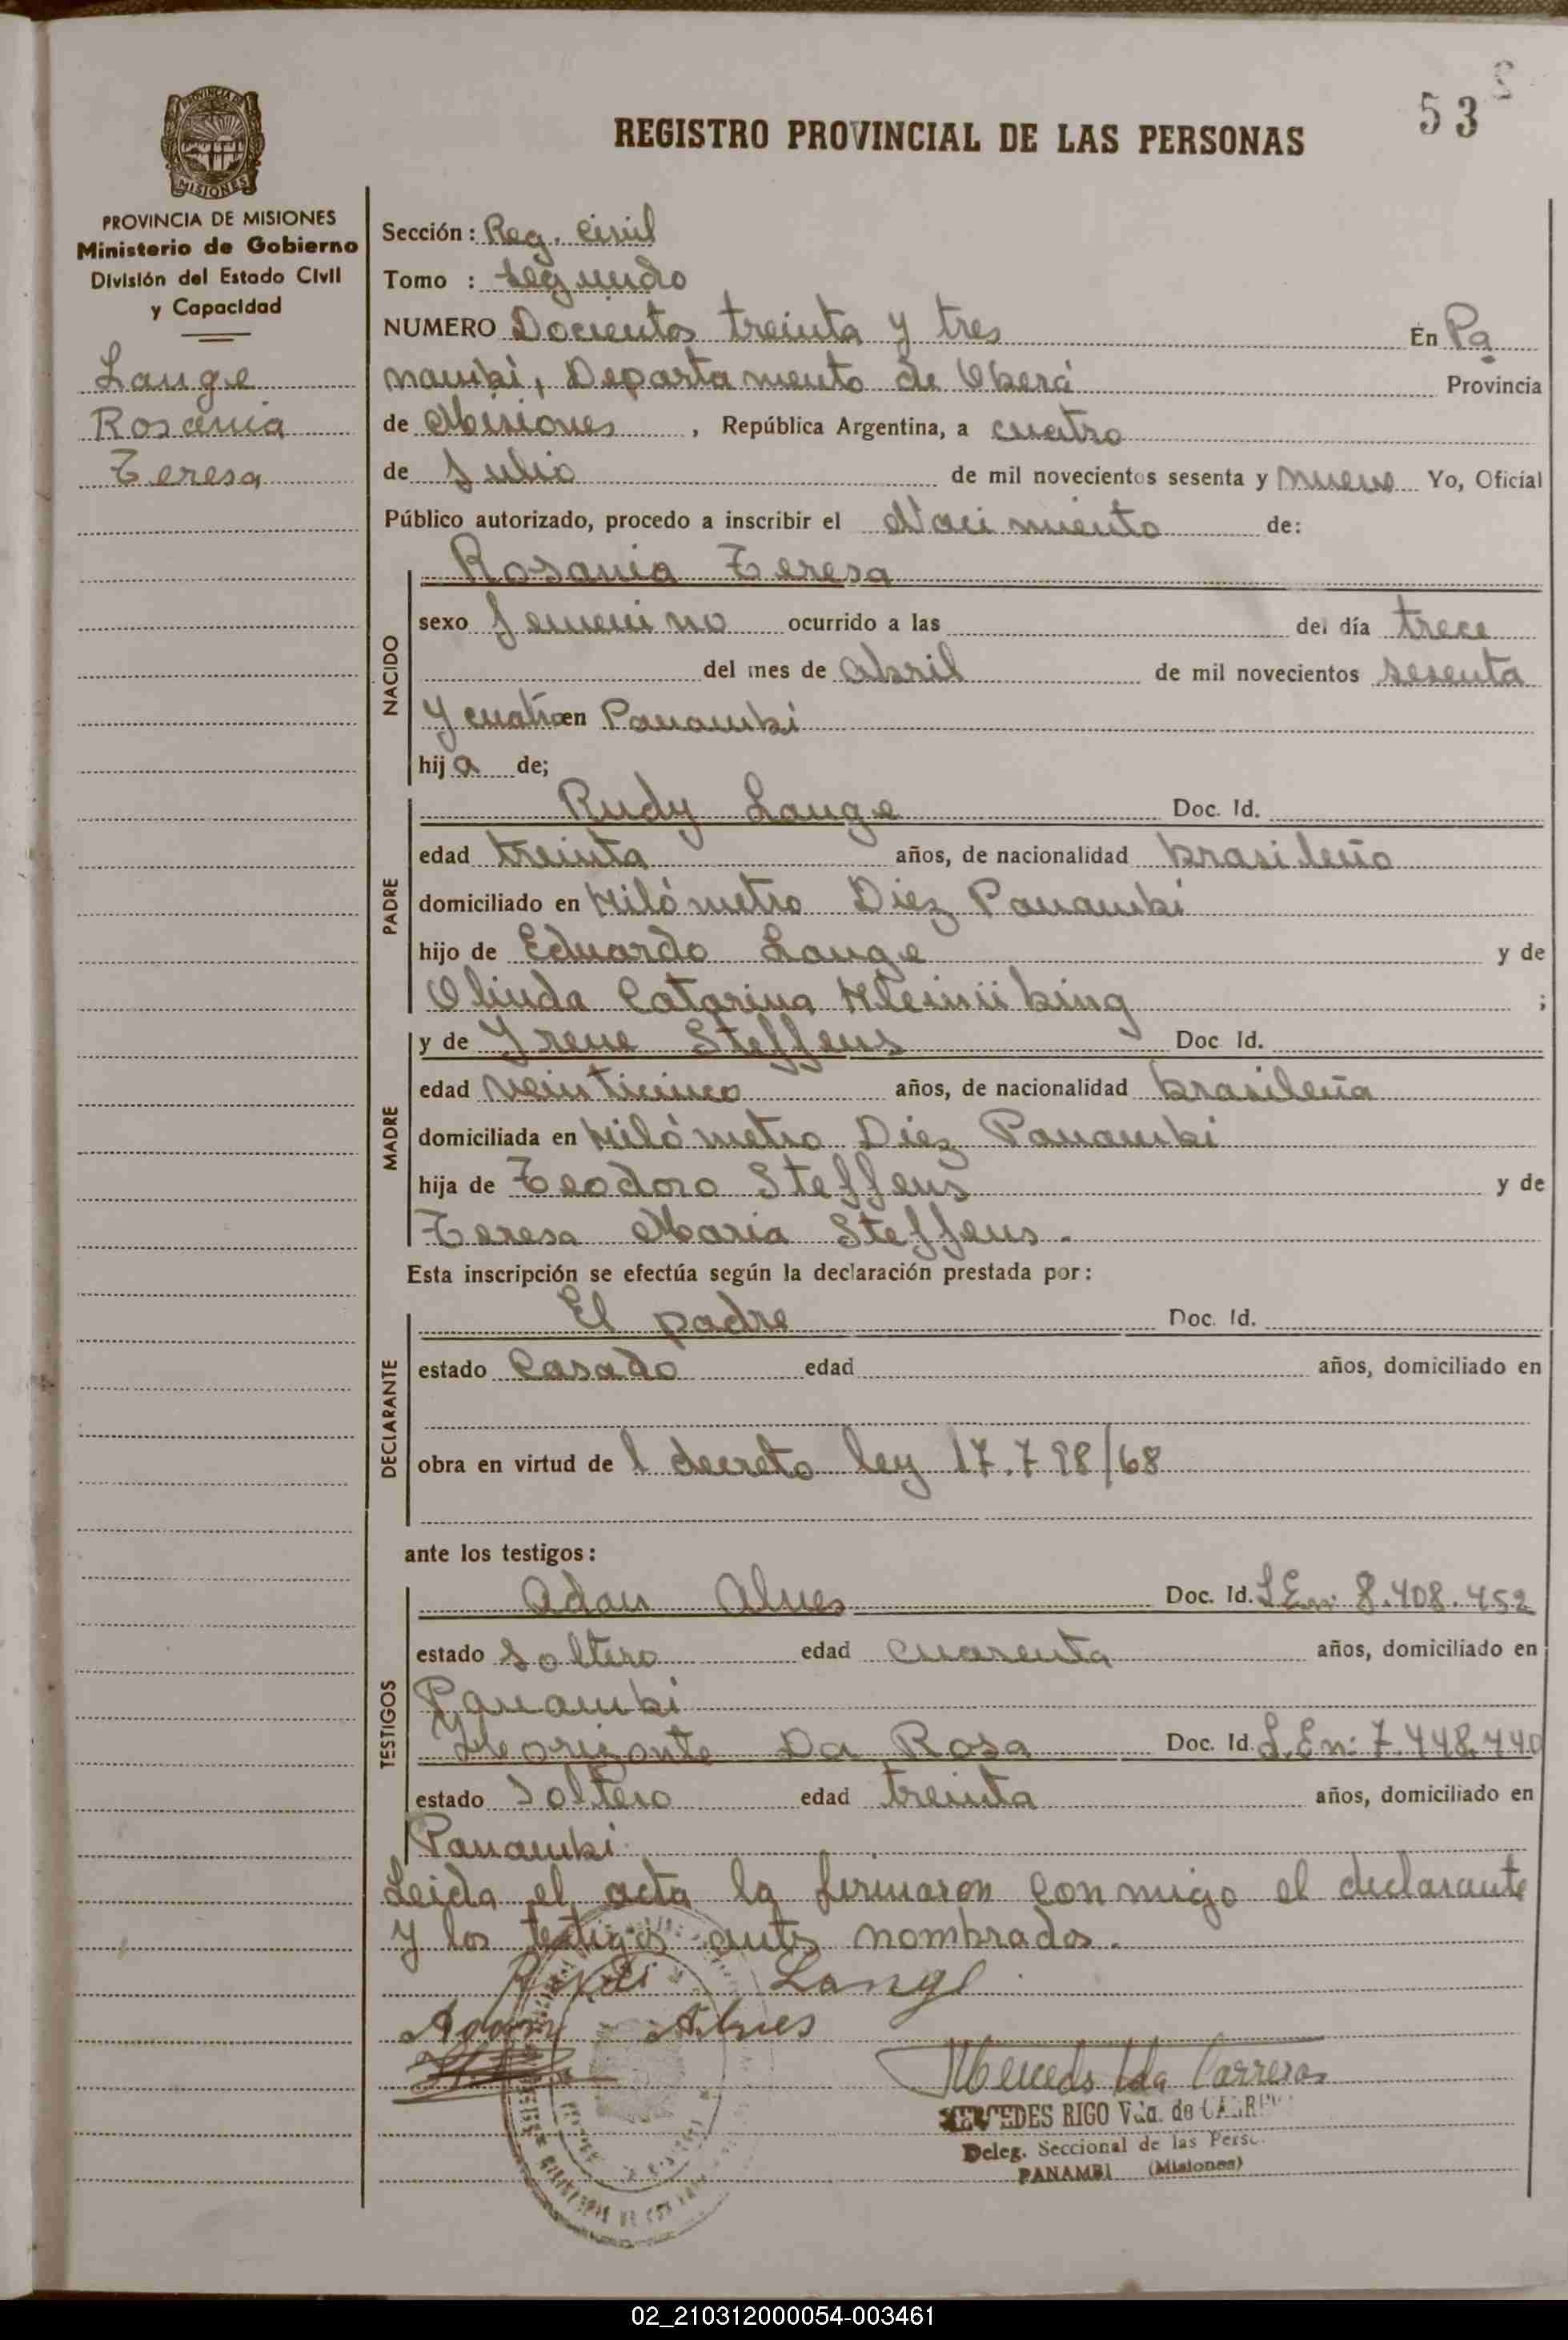 53
REGISTRO PROVINCIAL DE LAS PERSONAS
PROVINCIA DE
MISIONES
PROVINCIA DE MISIONES
Ministerio de Gobierno
División del Estado Civil
y Capacidad
Lange
Rosania
Teresa
Sección: Reg. Civil
Tomo : Segundo
NUMERO Docientos treinta y tres En Pa
nambi, Departamento de Oberá Provincia
de Misiones , República Argentina, a cuatro
de Julio de mil novecientos sesenta y nueve Yo, Oficial
Público autorizado, procedo a inscribir el Nacimiento de:
NACIDO
Rosania Teresa
sexo femenino ocurrido a las del día trece
del mes de abril de mil novecientos sesenta
y cuatro en Panambi
hija de;
PADRE
Rudy Lange Doc. Id.
edad treinta años, de nacionalidad brasileño
domiciliado en Kilómetro Diez Panambi
hijo de Eduardo Lange y de
Olinda Catarina ;
MADRE
y de Yrene Steffens Doc Id.
edad veinticinco años, de nacionalidad brasileña
domiciliada en Kilómetro Diez Panambi
hija de Teodoro Steffens y de
Teresa Maria Steffens.
Esta inscripción se efectúa según la declaración prestada por:
DECLARANTE
El padre Doc. Id.
estado Casado edad años, domiciliado en
obra en virtud de l decreto ley 17.798/68
ante los testigos:
TESTIGOS
Adan Alves Doc. Id. L.En: 8.408.452
estado Soltero edad cuarenta años, domiciliado en
Panambi
Da Rosa Doc. Id. L.En: 7.448.440
estado Soltero edad treinta años, domiciliado en
Panambi.
Leida el acta la firmaron conmigo el declarante
y los testigos antes nombrados.
Lange
Adam Alves
Mercedes Vda Carreras
MERCEDES RIGO Vda. de
Deleg. Seccional de las Pers.
PANAMBI (Misiones)
02_210312000054-003461